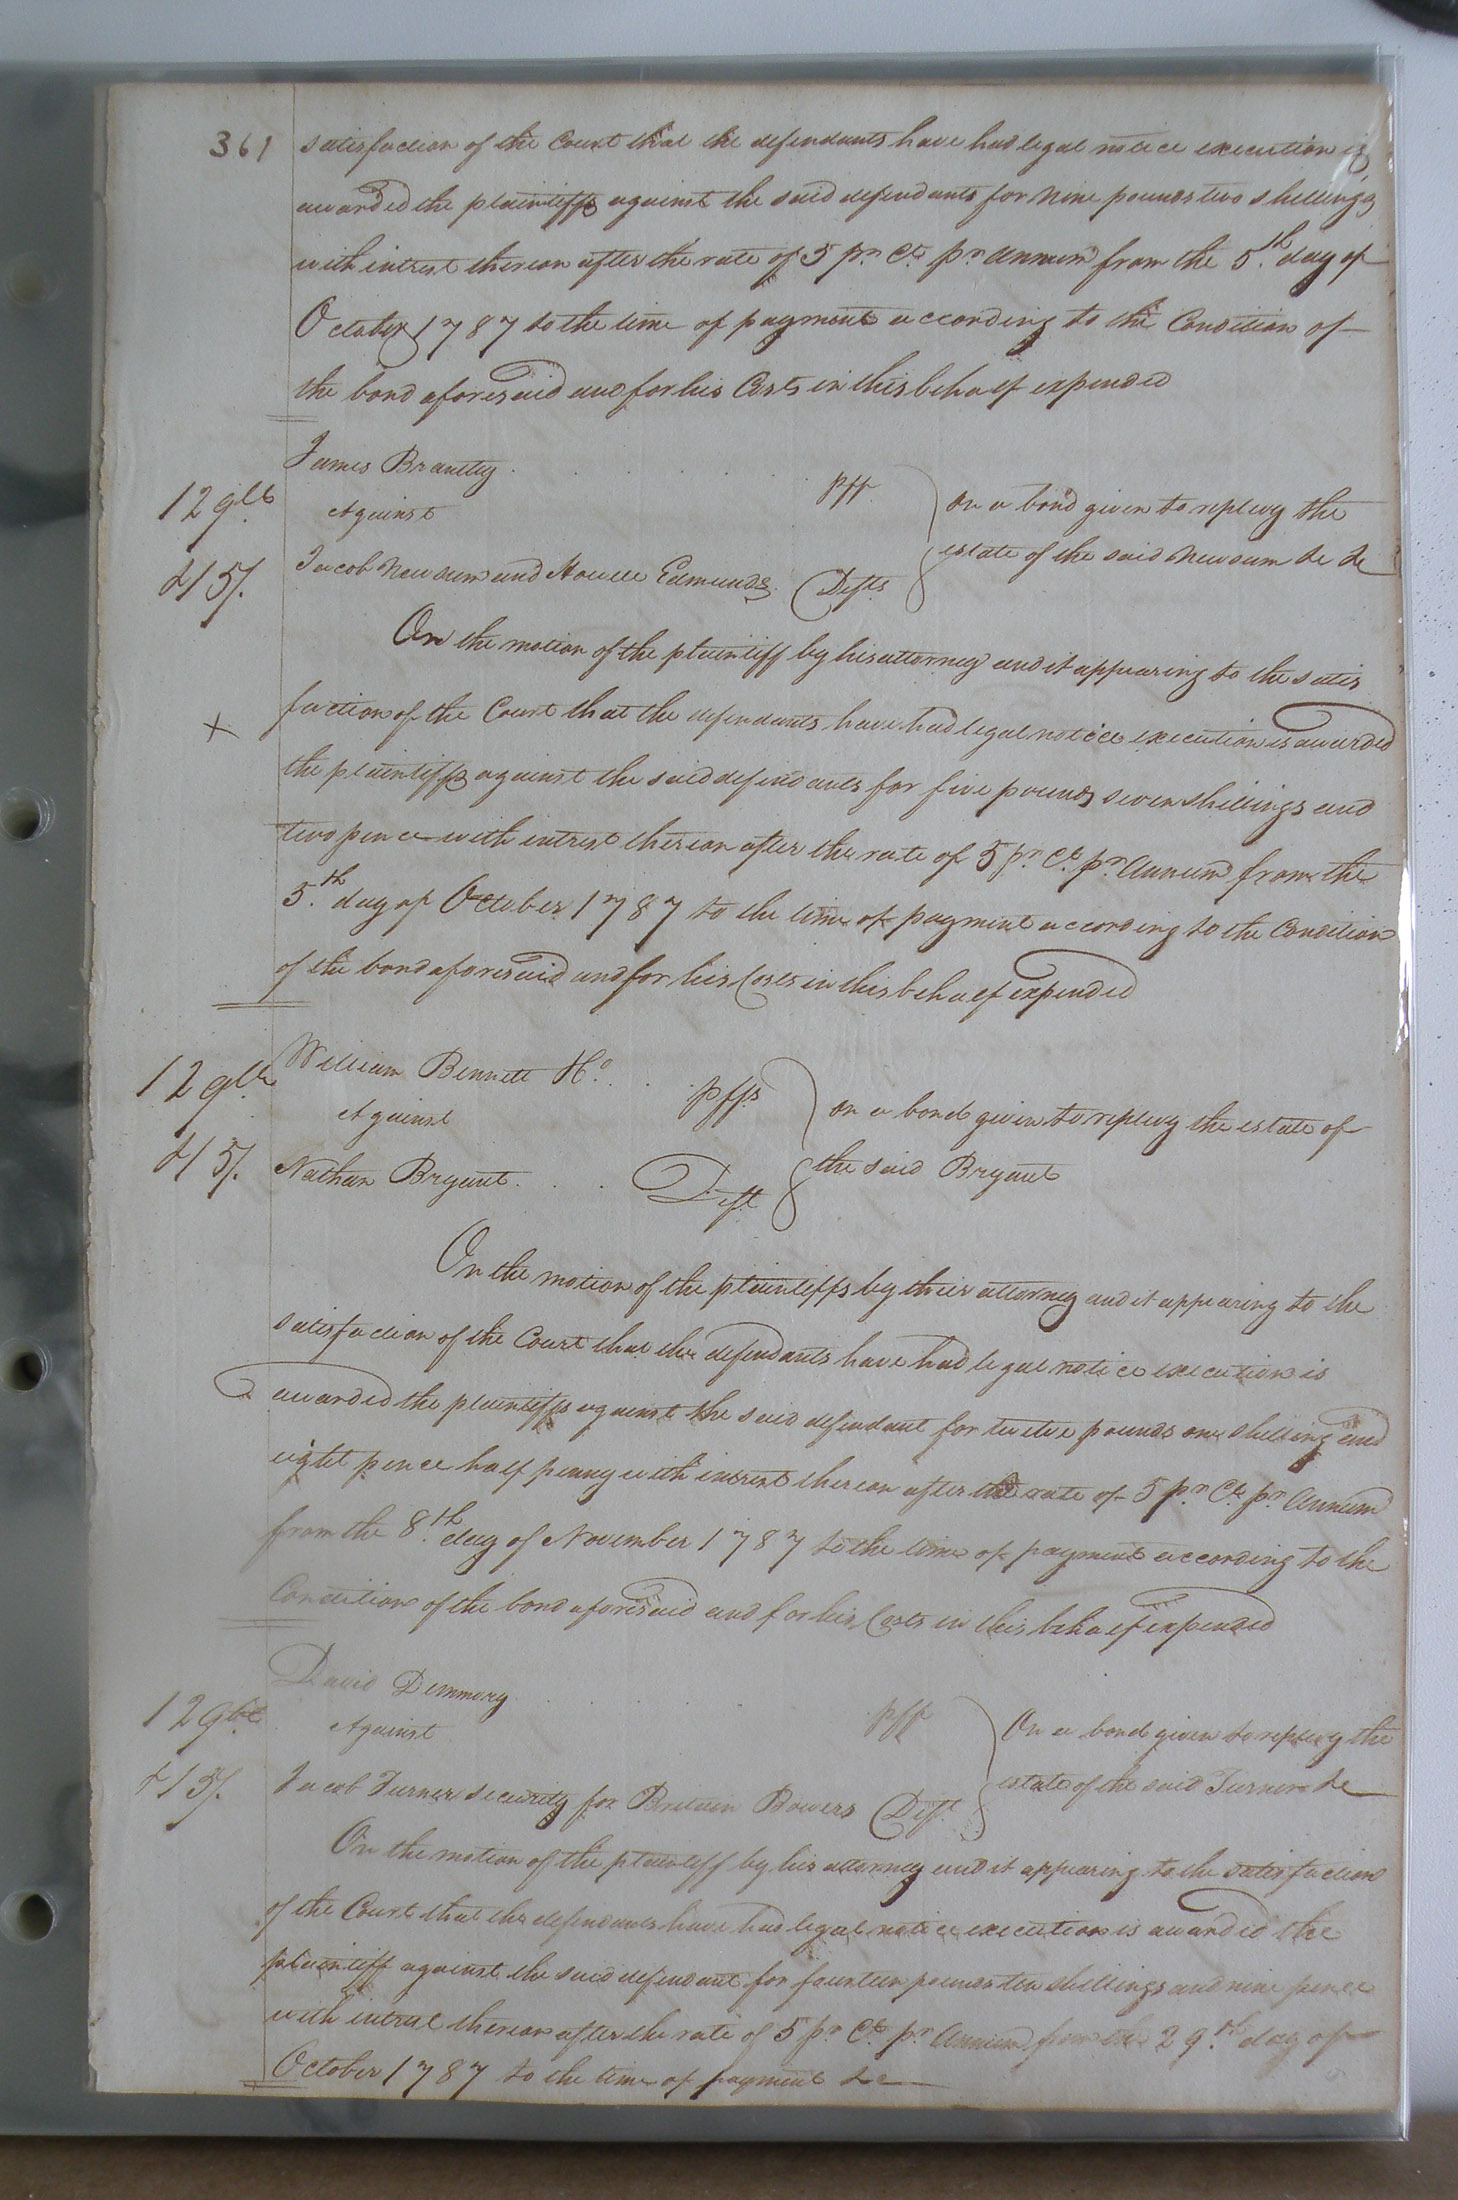 361
satisfaction of the Court that the defendants have had legal notice execution is
awarded the plaintiffs against the said defendants for nine pounds two shillings
with intrest thereon after the rate of 5 pr Ct pr Annum from the 5th day of
October 1787 to the time of payment according to the Condition of
the bond aforesaid and for his Costs in this behalf expended
James Brantley pff
12
Against
on a bond given to replevy the
estate of the said Newsum &c &c
Jacob Newsum and Howell Edmunds Defts
415/.
On the motion of the plaintiff by his attorney and it appearing to the satis
faction of the Court that the defendants have had legal notice execution is awarded
the plaintiffs against the said defendants for five pounds seven shillings and
two pence with intrest thereon after the rate of 5 pr Ct. pr Annum from the
5th day of October 1787 to the time of payment according to the Condition
of the bond aforesaid and for his Costs in this behalf expended
William Bennett pffs
12
Against
on a bond given to replevy the estate of
the said Bryant
415/. Nathan Bryant Deft
On the motion of the plaintiffs by their attorney and it appearing to the
satisfaction of the Court that the defendants have had legal notice execution is
awarded the plaintiffs against the said defendant for twelve pounds one shilling and
eight pence half penny with intrest thereon after the rate of 5 pr Ct. pr Annum
from the 8th day of November 1787 to the time of payment according to the
Condition of the bond aforesaid and for his Costs in this behalf expended
David pff
12
Against
On a bond given to replevy the
estate of the said Turner &c
415/. Jacob Turner security for Bowers Deft
On the motion of the plaintiff by his attorney and it appearing to the satisfaction
of the Court that the defendants have had legal notice execution is awarded the
plaintiff against the said defendant for fourteen pounds ten shillings and nine pence
with intrest thereon after the rate of 5 pr Ct pr Annum from the 29th day of
October 1787 to the time of payment &c